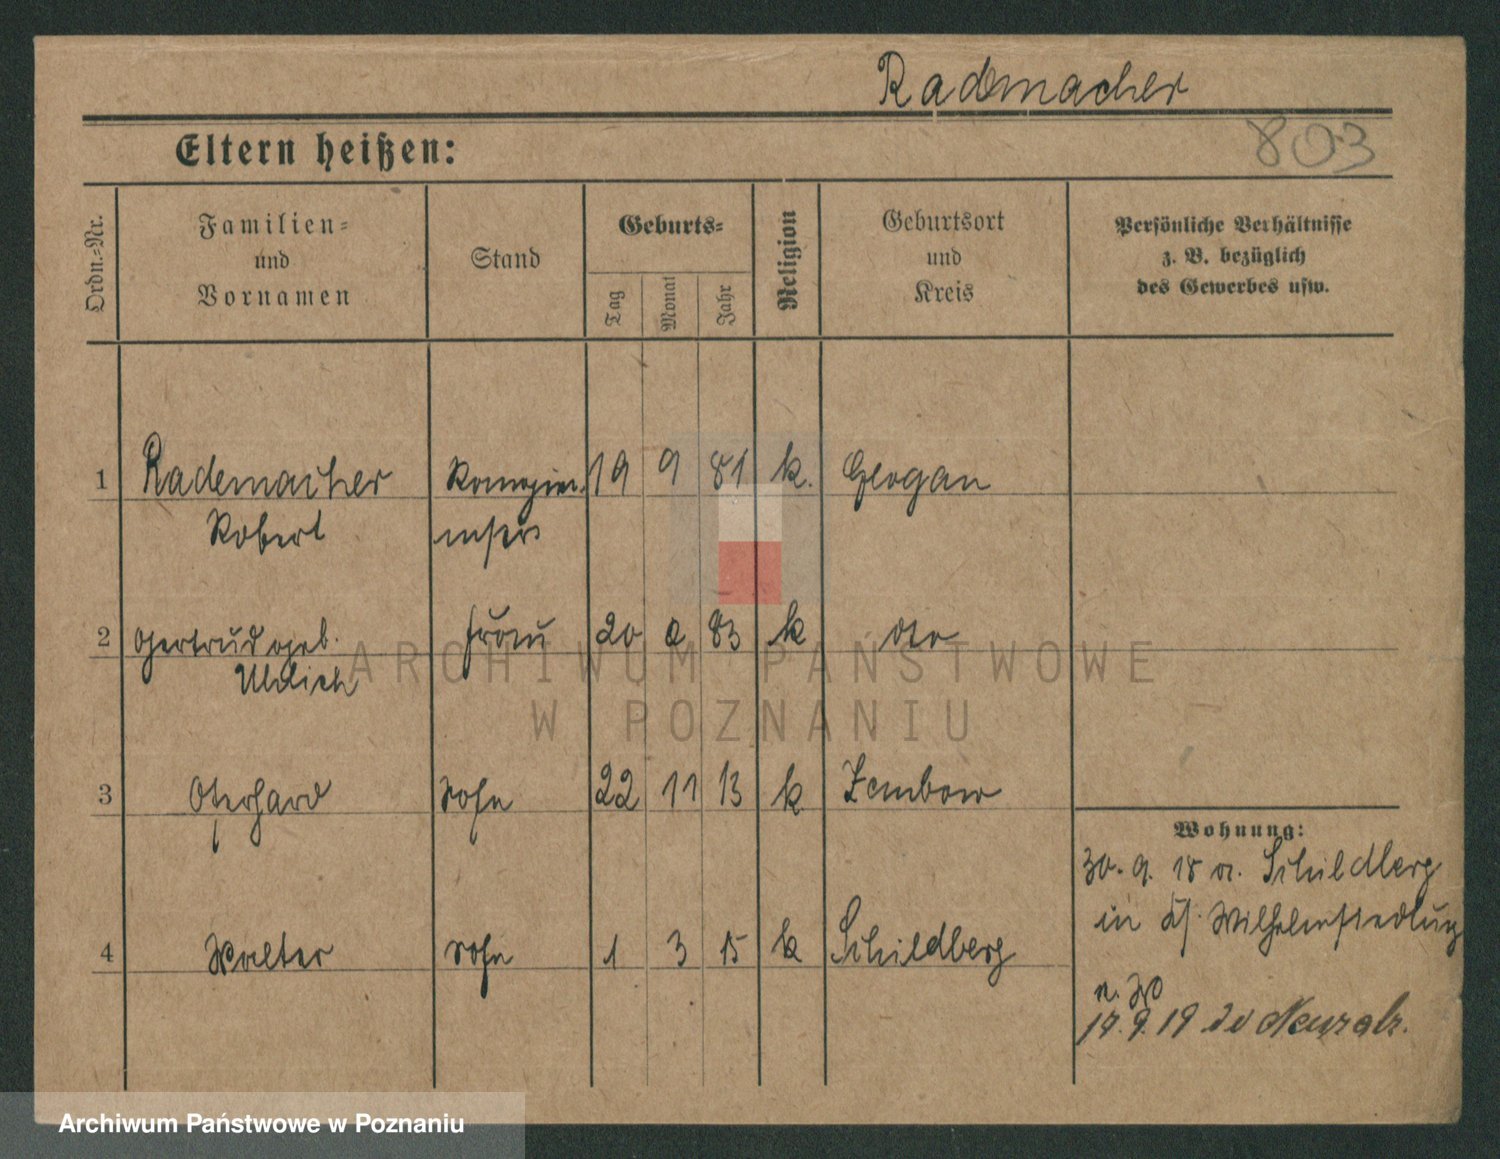 Rademacher
803
Eltern heißen:
Ordn.-Nr.
Familien- und Vornamen
Stand
Geburts-
Tag
Monat
Jahr
Religion
Geburtsort und Kreis
Persönliche Verhältnisse z. B. bezüglich des Gewerbes usw.
1 Rademacher 19 9 81 k. Glogau
Robert
2 Gertrud geb. Frau 20 2 83 k dto
Ullrich
ARCHIWUM PAŃSTWOWE
W POZNANIU
3 Gerhard Sohn 22 11 13 k Zembow
Wohnung:
30. 9. 18 a. Schildberg
in Wilhelmstedlung
4 Walter Sohn 1 3 15 k Schildberg
n. W
17. 9. 19
Archiwum Państwowe w Poznaniu